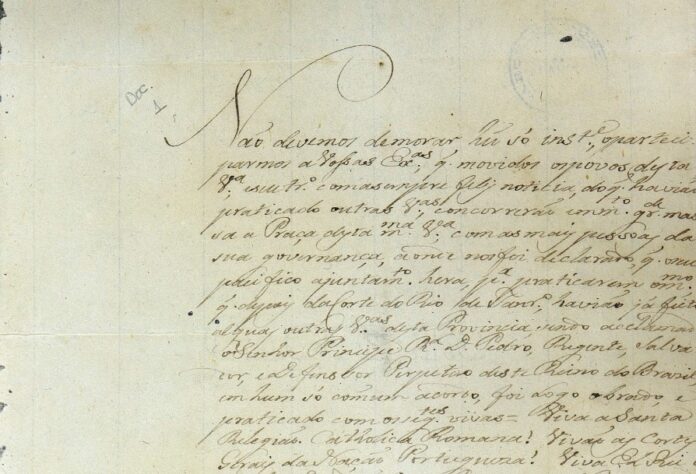 Doc.
1
Não devemos demorar hũ só inst.e, o partici-
parmos a Vossas Ex.as, q. movidos os povos desta
V.a, e seu tr.o com a sempre feliz noticia, do q. havião
praticado outras V.as, concorrerão em m.to gr.de mas-
sa a Praça desta m.ma V.a, com as mais pessoas da
sua governança, aonde nos foi declarado, q. o seu
pacifico ajuntam.to hera, p.a praticarem o m.mo
q. depois da Corte do Rio de Janr.o, havião já feito
algũas outras V.as desta Provincia, sendo aclamado
o Senhor Principe R.l D. Pedro, Regente, Salva
dor, e Defensor Perpetuo deste Reino do Brazil
em hum só comum acordo, foi logo obrado, e
praticado com os seg.tes vivas = Viva a Santa
Religião Catholica Romana! Vivão as Cortes
Gerais da Nação Portugueza! Viva El Rei